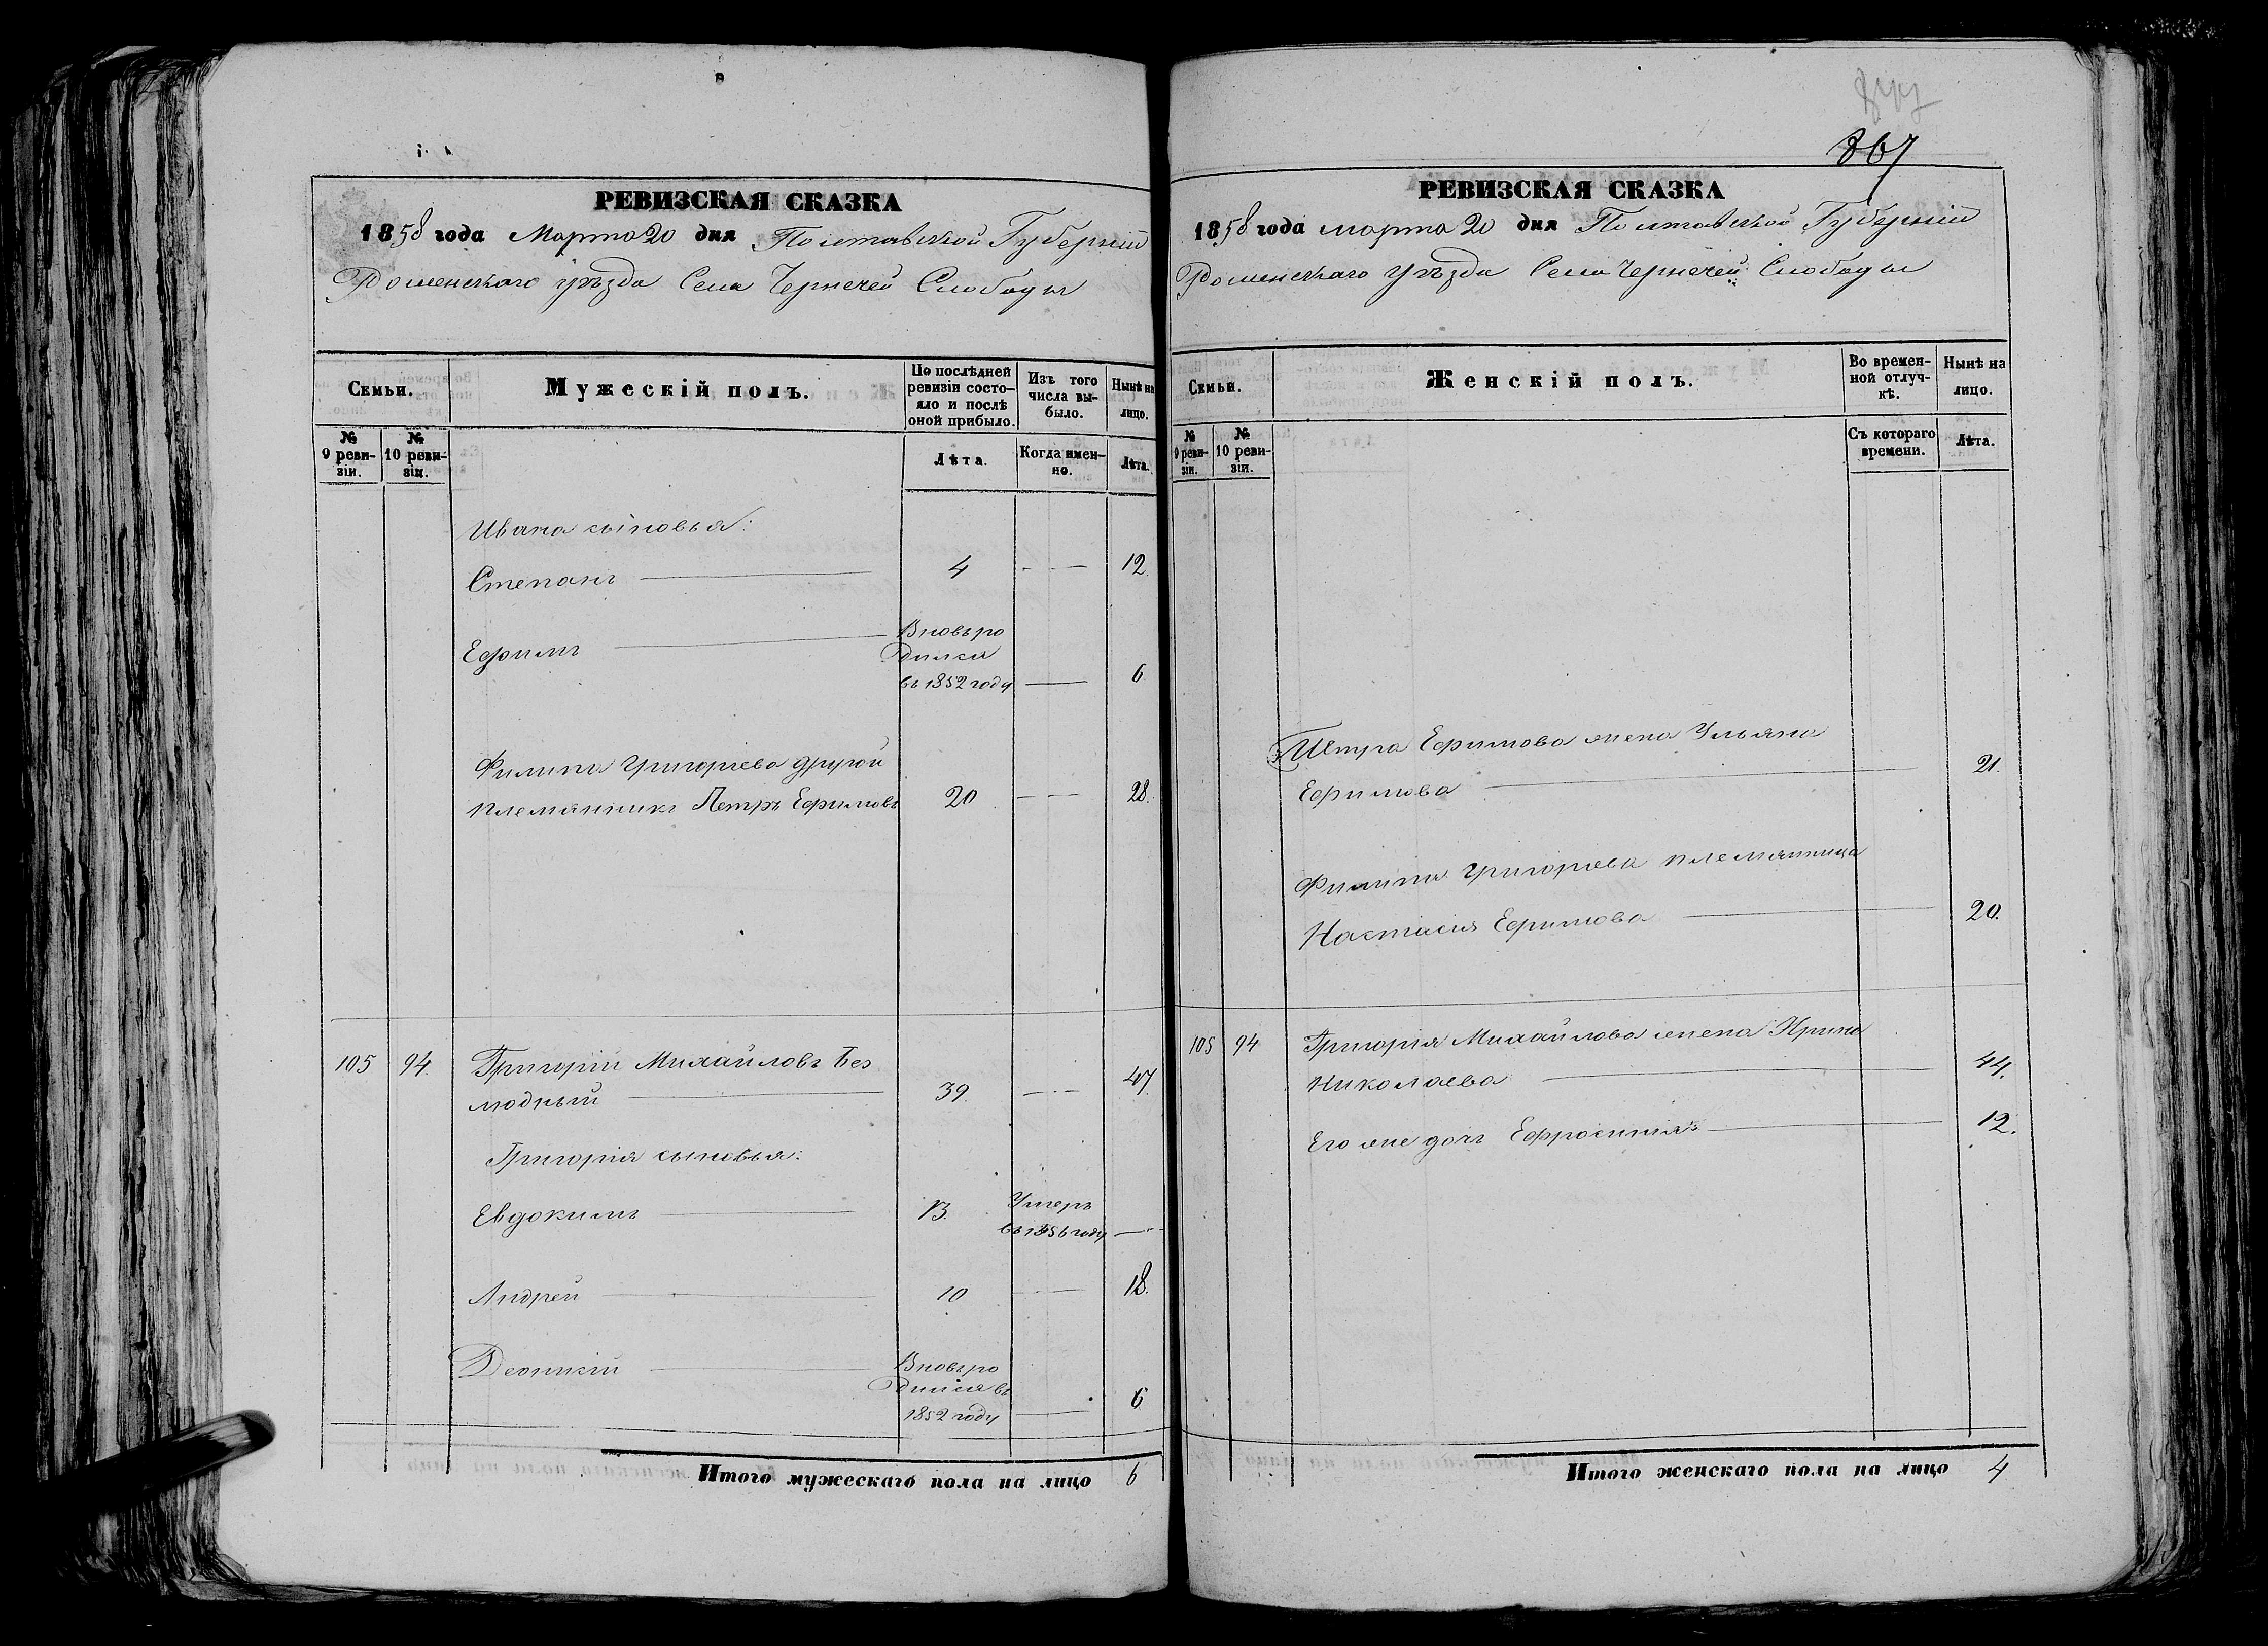 РЕВИЗСКАЯ СКАЗКА
1858 года Марта 20 дня Полтавской Губерніи
Роменскаго уѣзда Села Чернечей Слободы
Семьи.
Мужескій полъ.
По послѣдней ревизіи состояло и послѣ оной прибыло.
Изъ того числа выбыло.
Нынѣ на лицо.
№ 9 ревизіи.
№ 10 ревизіи.
Лѣта.
Когда именно.
Лѣта.
Ивана сыновья:
Степанъ 4 12.
Ефимъ Вновь ро
дился
въ 1852 году 6
Филипа Григорьева другой
племянникъ Петръ Ефимовъ 20 28.
105 94. Григорій Михайловъ Без
людный 39. 47.
Григорія сыновья:
Евдокимъ 13. Умеръ
въ 1856 году
Андрей 10 18.
Леонтій Вновь ро
дился въ
1852 году 6
Итого мужескаго пола на лицо 6
867
РЕВИЗСКАЯ СКАЗКА
1858 года марта 20 дня Полтавской Губерніи
Роменскаго уѣзда Села Чернечей Слободы
Семьи.
Женскій полъ.
Во временной отлучкѣ.
Нынѣ на лицо.
№ 9 ревизіи.
№ 10 ревизіи.
Съ котораго времени.
Лѣта.
Петра Ефимова жена Ульяна
Ефимова 21.
Филипа Григорьева племянница
Настасия Ефимова 20.
105 94 Григорія Михайлова жена Ирина
Николаева 44.
Его же дочь Ефросинія 12.
Итого женскаго пола на лицо 4